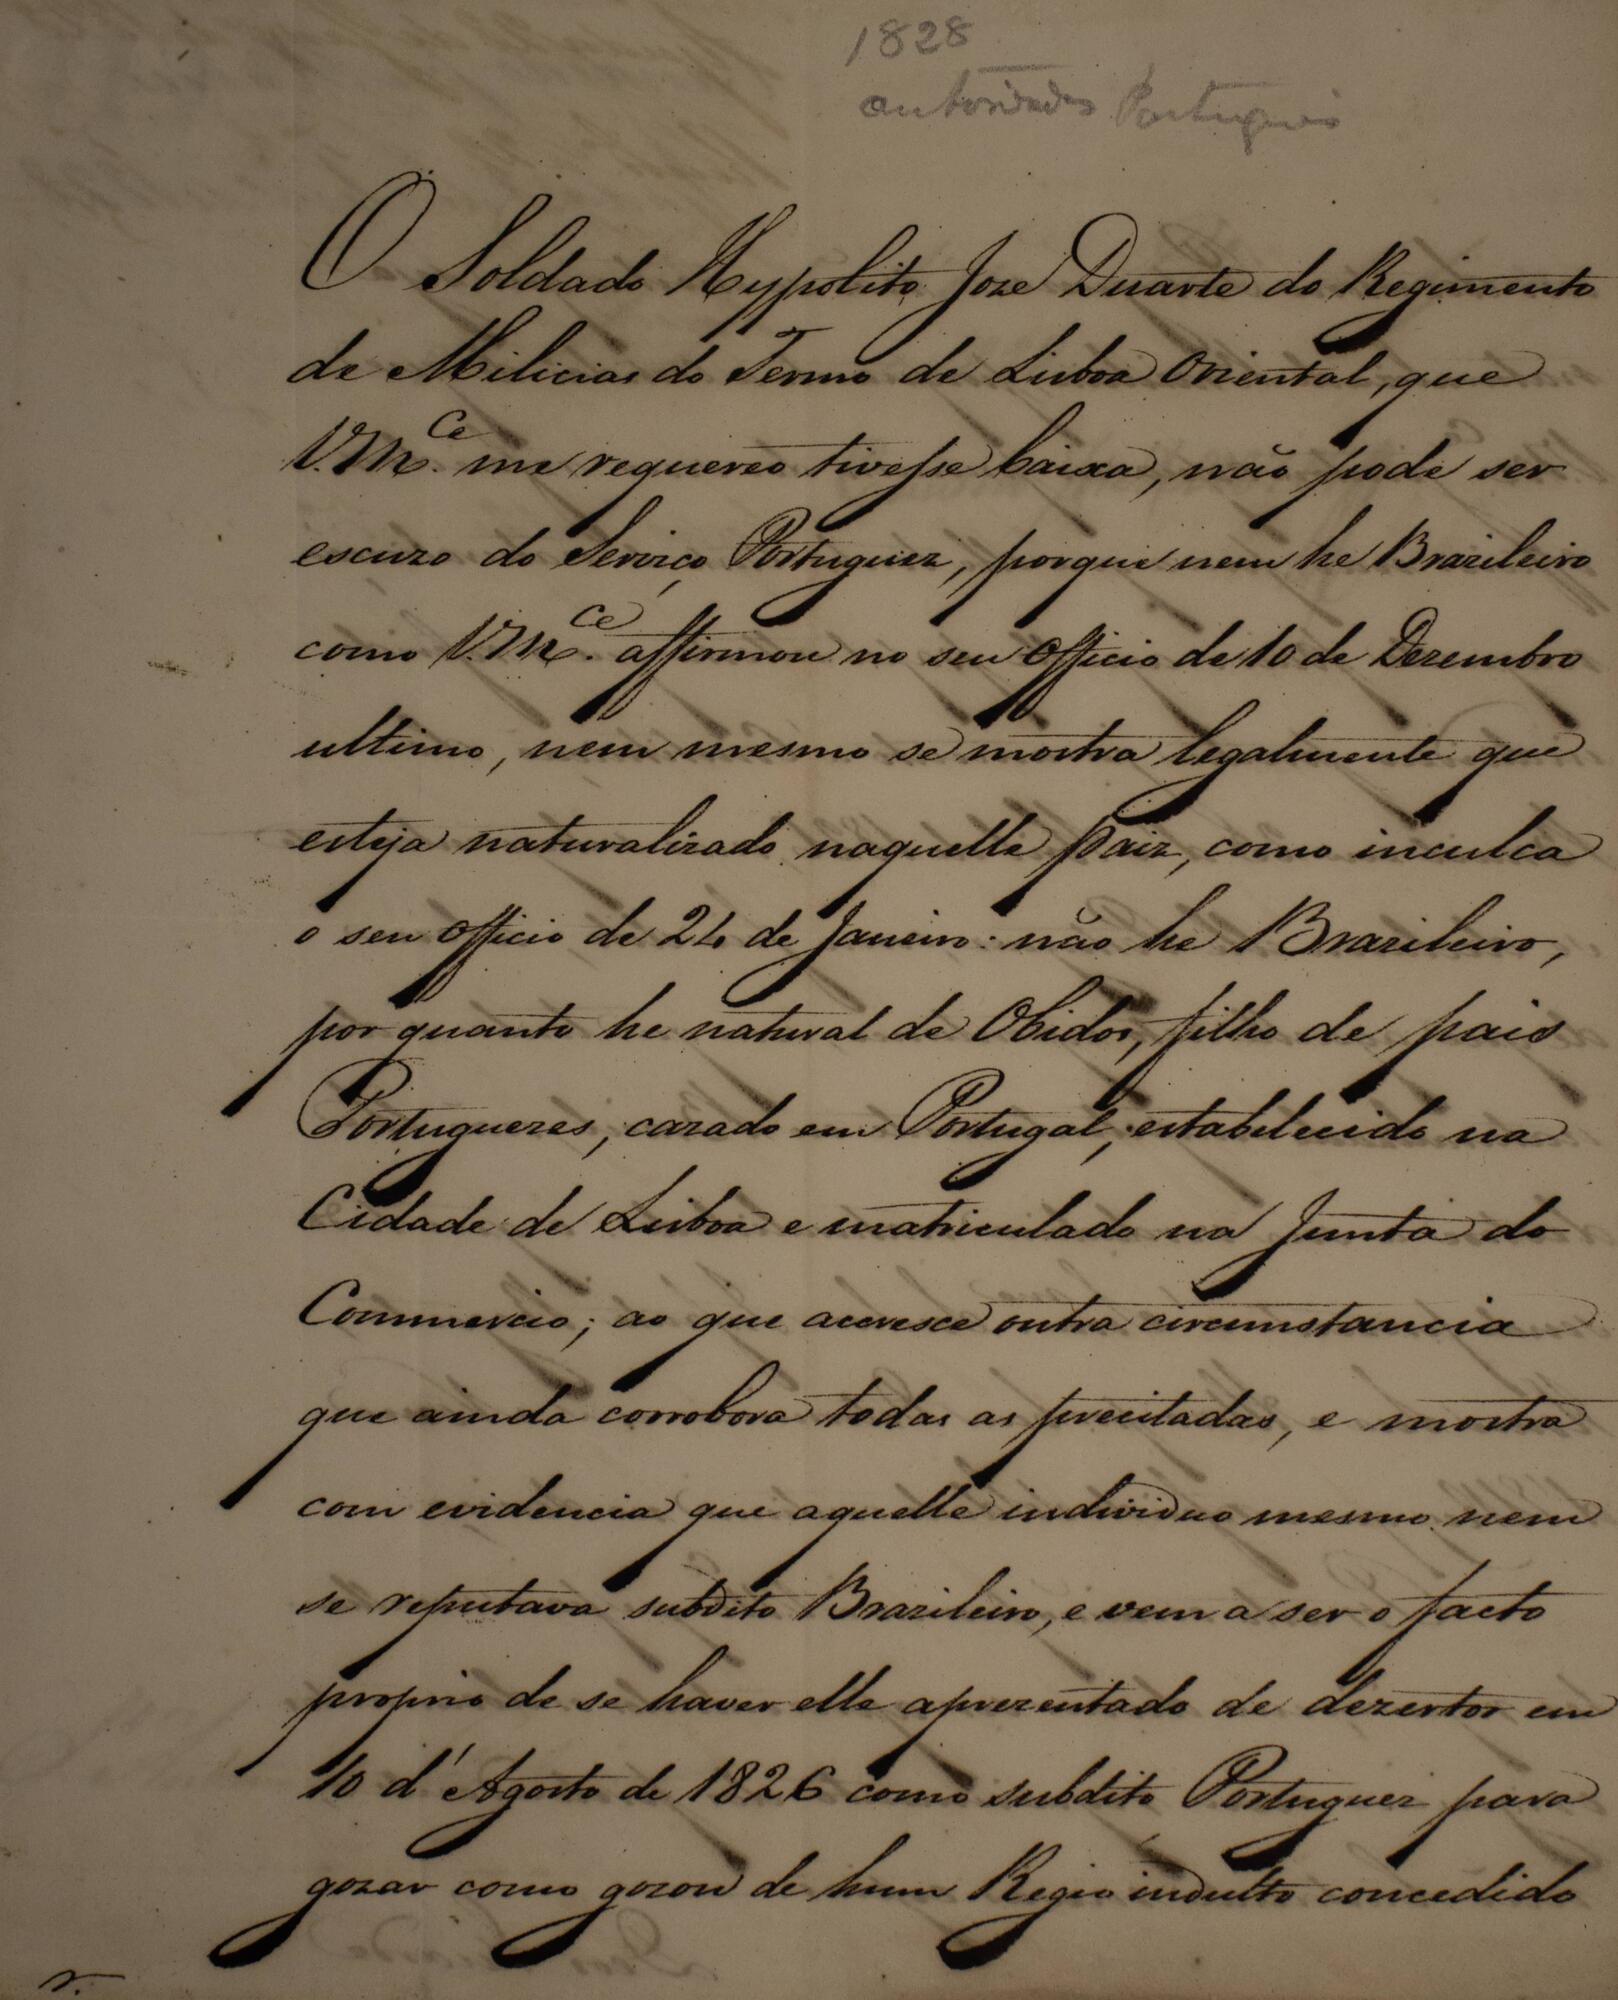 1828
autoridades Portuguesas
O Soldado Hypolito Joze Duarte do Regimento
de Milicias do Termo de Lisboa Oriental, que
V.M.ce me requereo tivesse baixa, não pode ser
escuzo do Serviço Portuguez, porque nem he Brazileiro
como V.M.ce affirmou no seu Officio de 10 de Dezembro
ultimo, nem mesmo se mostra legalmente que
esteja naturalizado naquelle Paiz, como inculca
o seu officio de 24 de Janeiro: não he Brazileiro,
por quanto he natural de Obidos, filho de pais
Portuguezes, cazado em Portugal, estabelecido na
Cidade de Lisboa e matriculado na Junta do
Commercio; ao que accresce outra circumstancia
que ainda corrobora todas as precitadas, e mostra
com evidencia que aquelle individuo mesmo nem
se reputava subdito Brazileiro, e vem a ser o facto
proprio de se haver elle aprezentado de dezertor em
10 d'Agosto de 1826 como subdito Portuguez para
gozar como gozou de hum Regio indulto concedido